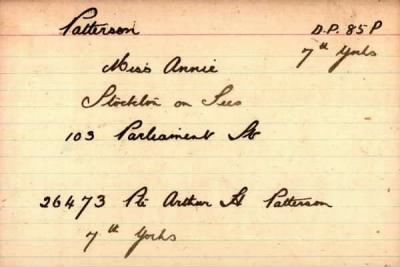 Patterson D.P. 85 P
7th Yorks
Miss Annie
Stockton on Tees
103 Parliament St
26473 Pte Arthur H Patterson
7th Yorks